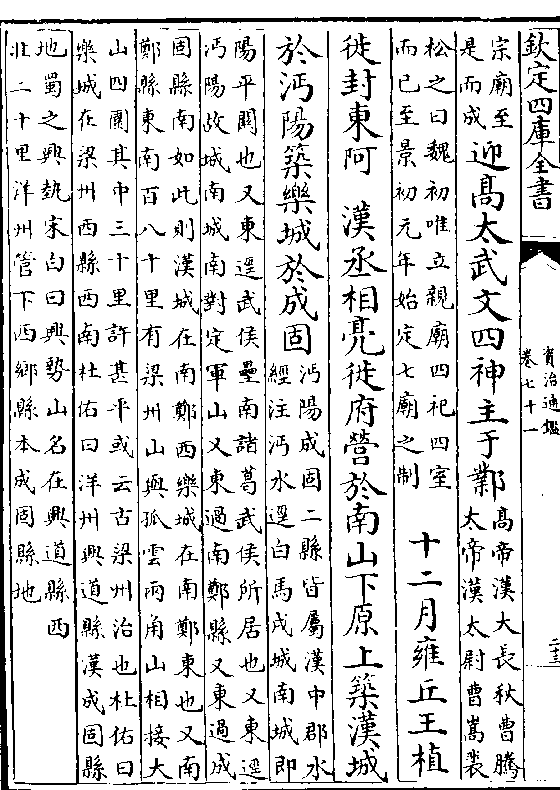 欽定四庫全書
資治通鑑
卷七十一
二十三
宗廟至
是而成
迎高太武文四神主于鄴
高帝漢大長秋曹騰
太帝漢太尉曹嵩裴
松之曰魏初唯立親廟四祀四室
而已至景初元年始定七廟之制
十二月雍丘王植
徙封東阿　漢丞相亮徙府營於南山下原上築漢城
於沔陽築樂城於成固
沔陽成固二縣皆屬漢中郡水
經注沔水逕白馬戍城南城即
陽平關也又東逕武侯壘南諸葛武侯所居也又東逕
沔陽故城南城南對定軍山又東過南鄭縣又東過成
固縣南如此則漢城在南鄭西樂城在南鄭東也又南
鄭縣東南百八十里有梁州山與孤雲兩角山相接大
山四圍其中三十里許甚平或云古梁州治也杜佑曰
樂城在梁州西縣西南杜佑曰洋州興道縣漢成固縣
地蜀之興埶宋白曰興勢山名在興道縣西
北二十里洋州管下西鄉縣本成固縣地